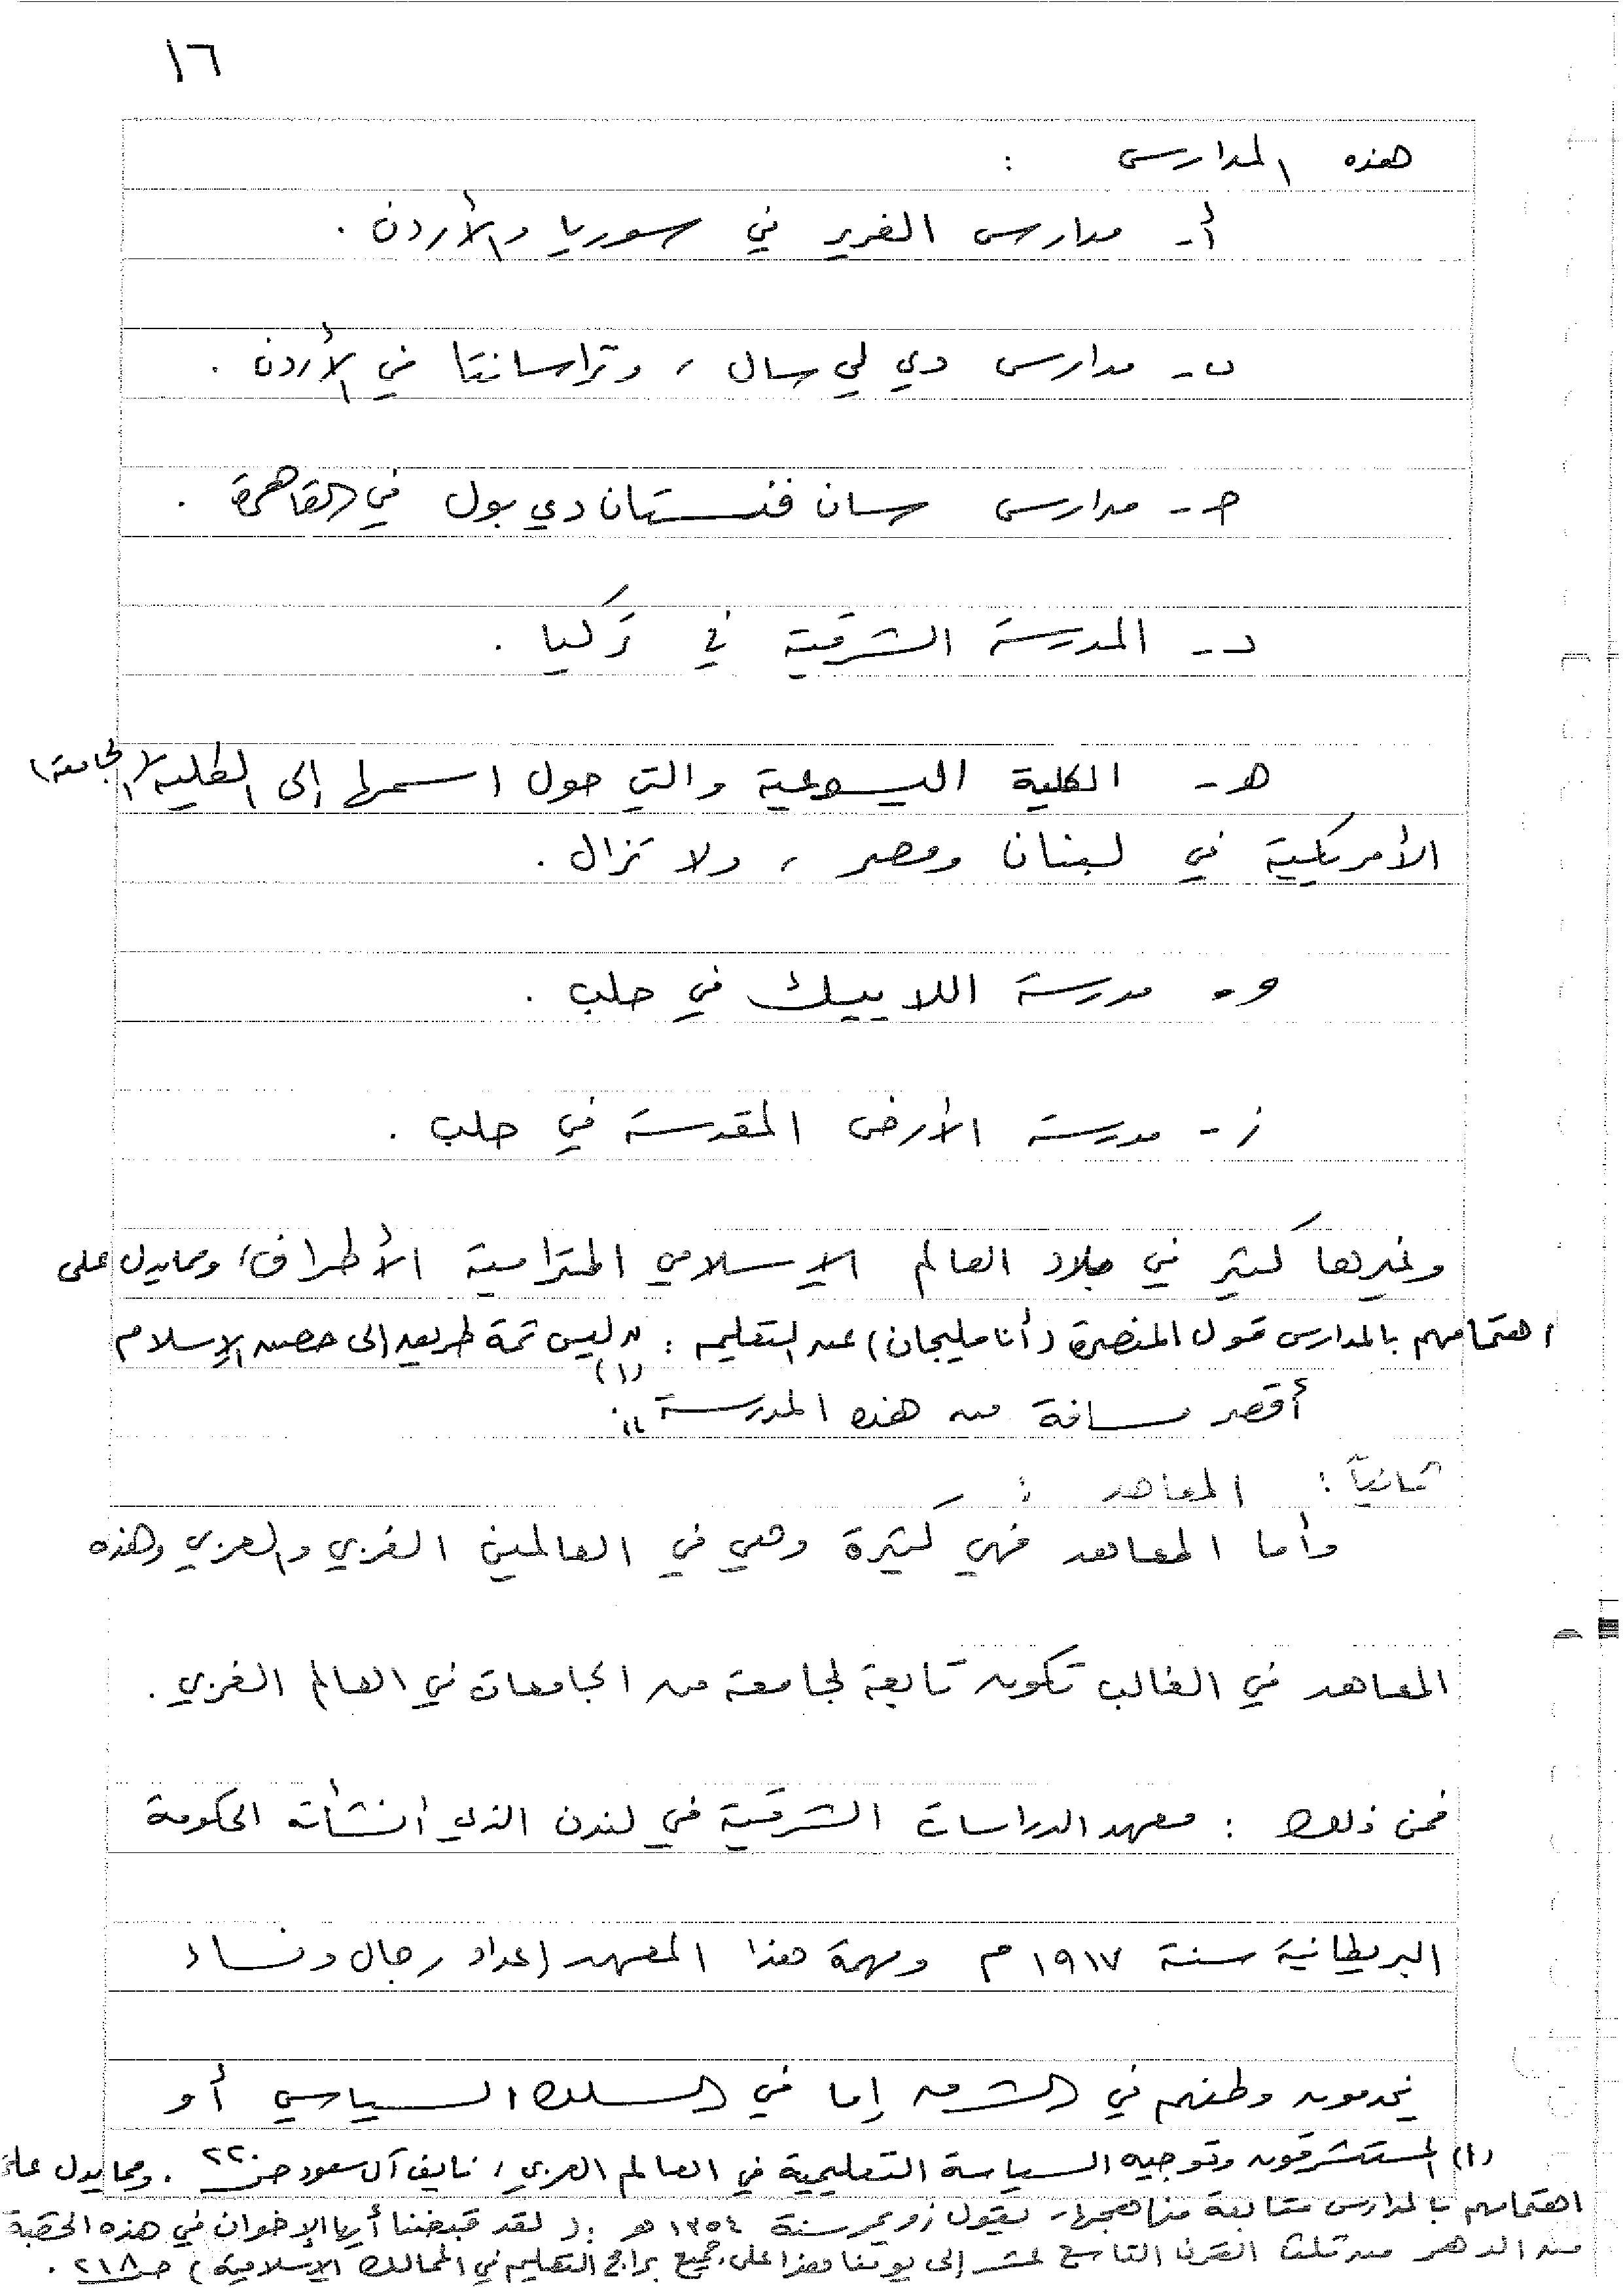 ١٦
هذه المدارس :
أ- مدارس الفرير في سوريا والأردن .
ب- مدارس دي لي سال ، وتراسانتا في الأردن .
جـ- مدارس سان فنستان دي بول في القاهرة .
د- المدرسة الشرقية في تركيا .
هـ- الكلية اليسوعية والتي حول اسمها إلى الكلية (الجامعة)
الأمريكية في لبنان ومصر ، ولا تزال .
و- مدرسة اللاييك في حلب .
ز- مدرسة الأرض المقدسة في حلب .
وغيرها كثير في بلاد العالم الإسلامي المترامية الأطراف، ومما يدل على
اهتمامهم بالمدارس قول المنصرة (أنا مليجان) عن التعليم : " ليس ثمة طريق إلى حصن الإسلام
أقصر مسافة من هذه المدرسة " (١) .
ثانياً : المعاهد :
وأما المعاهد فهي كثيرة وهي في العالمين الغربي والعربي وهذه
المعاهد في الغالب تكون تابعة لجامعة من الجامعات في العالم الغربي .
فمن ذلك : معهد الدراسات الشرقية في لندن الذي أنشأته الحكومة
البريطانية سنة ١٩١٧ م ومهمة هذا المعهد إعداد رجال ونساء
يخدمون وطنهم في الشرق إما في السلك السياسي أو
(١) المستشرقون وتوجيه السياسة التعليمية في العالم العربي / نايف آل سعود ص ٢٢٠ . ومما يدل على
اهتمامهم بالمدارس متابعة مناهجها، يقول زويمر سنة ١٣٥٤ هـ : ( لقد قبضنا أيها الإخوان في هذه الحقبة
من الدهر من ثلث القرن التاسع عشر إلى يومنا هذا على جميع برامج التعليم في الممالك الإسلامية ) ص ٢١٨ .